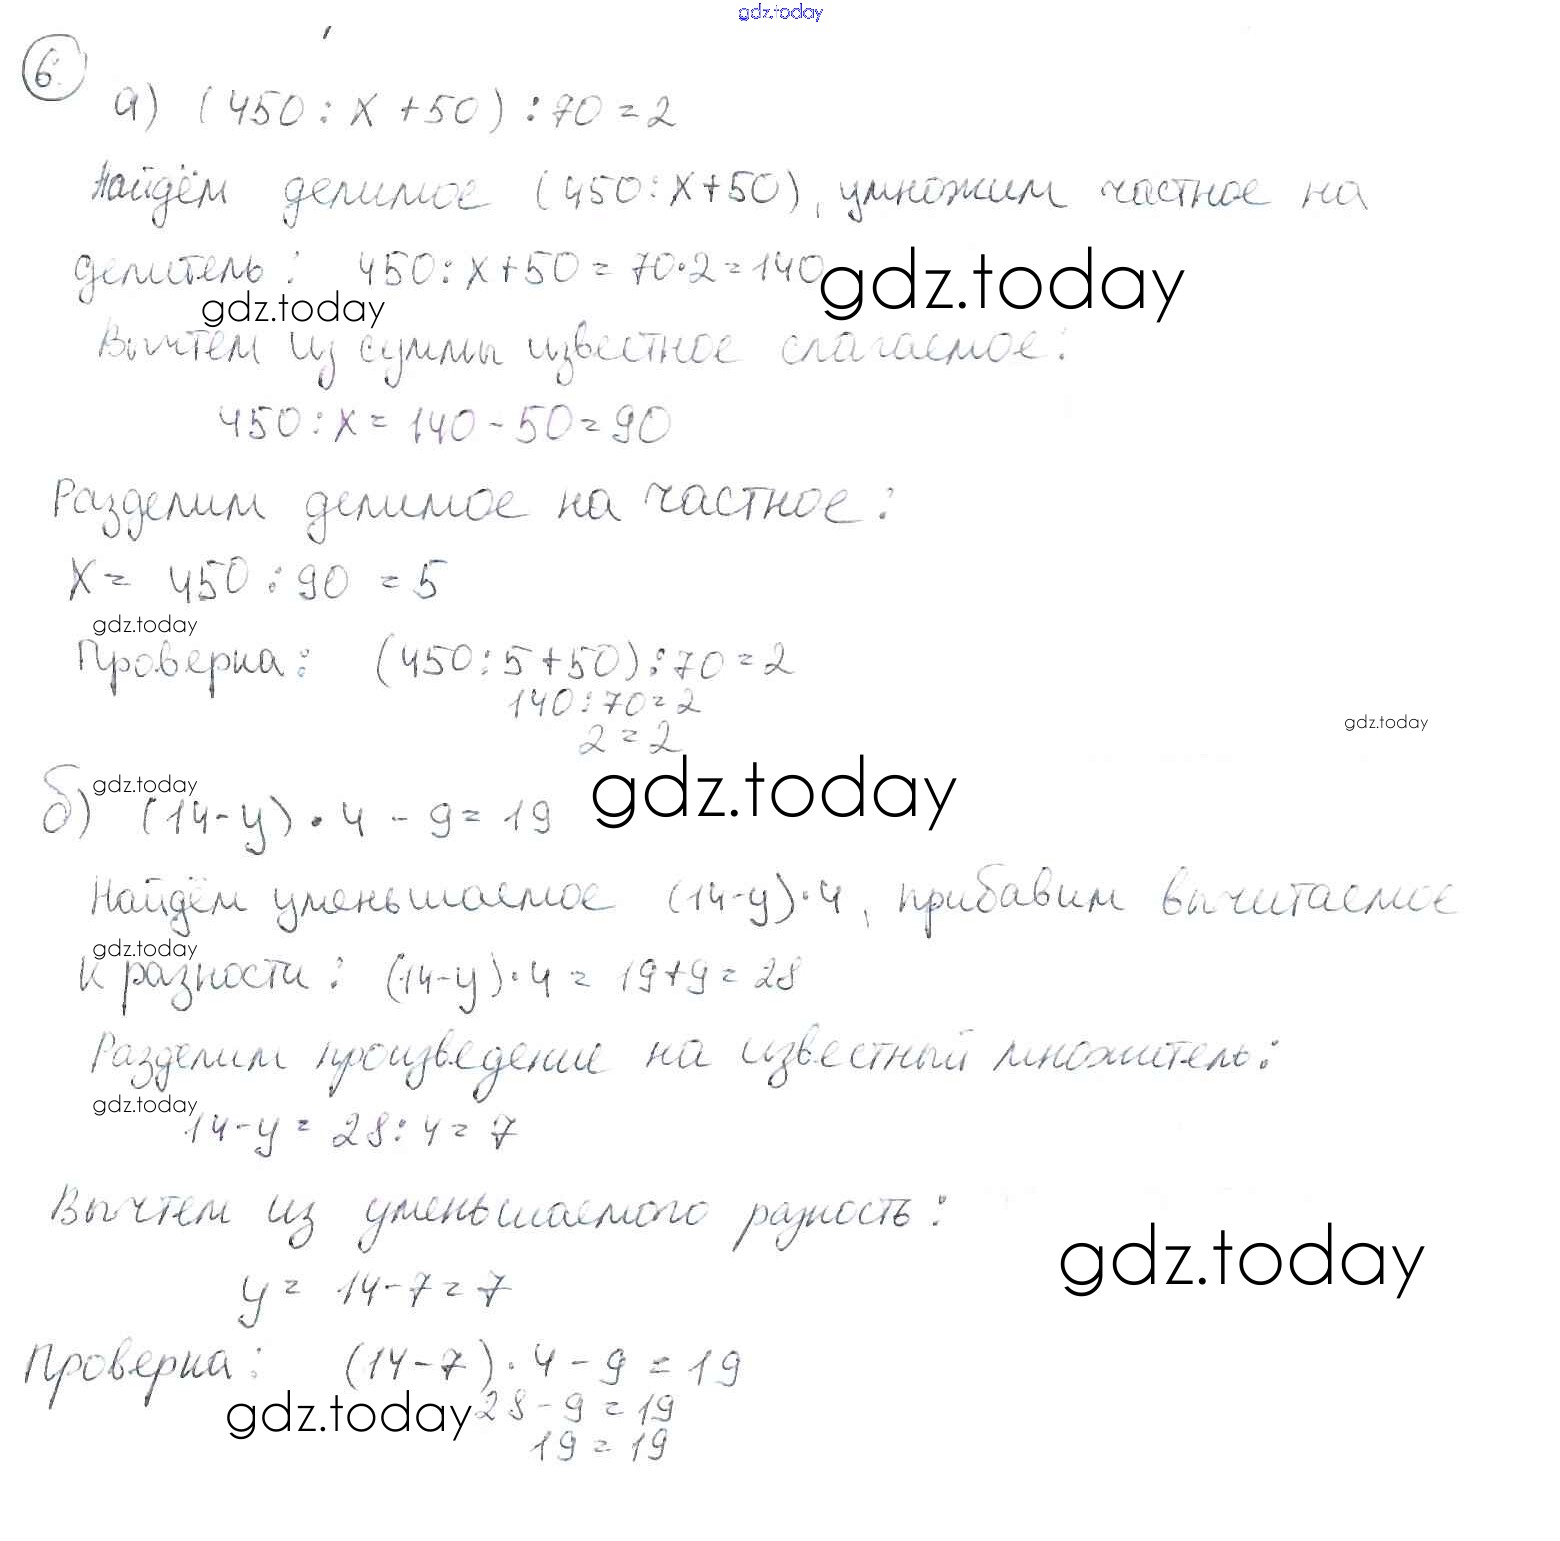 gdz.today
6.
а) (450 : x + 50) : 70 = 2
Найдём делимое (450 : x + 50), умножим частное на
делитель: 450 : x + 50 = 70 · 2 = 140
gdz.today
gdz.today
Вычтем из суммы известное слагаемое:
450 : x = 140 - 50 = 90
Разделим делимое на частное:
x = 450 : 90 = 5
gdz.today
Проверка: (450 : 5 + 50) : 70 = 2
140 : 70 = 2
gdz.today
2 = 2
gdz.today
gdz.today
б) (14 - y) · 4 - 9 = 19
Найдём уменьшаемое (14 - y) · 4, прибавим вычитаемое
gdz.today
к разности: (14 - y) · 4 = 19 + 9 = 28
Разделим произведение на известный множитель:
gdz.today
14 - y = 28 : 4 = 7
Вычтем из уменьшаемого разность:
gdz.today
y = 14 - 7 = 7
Проверка: (14 - 7) · 4 - 9 = 19
gdz.today
28 - 9 = 19
19 = 19